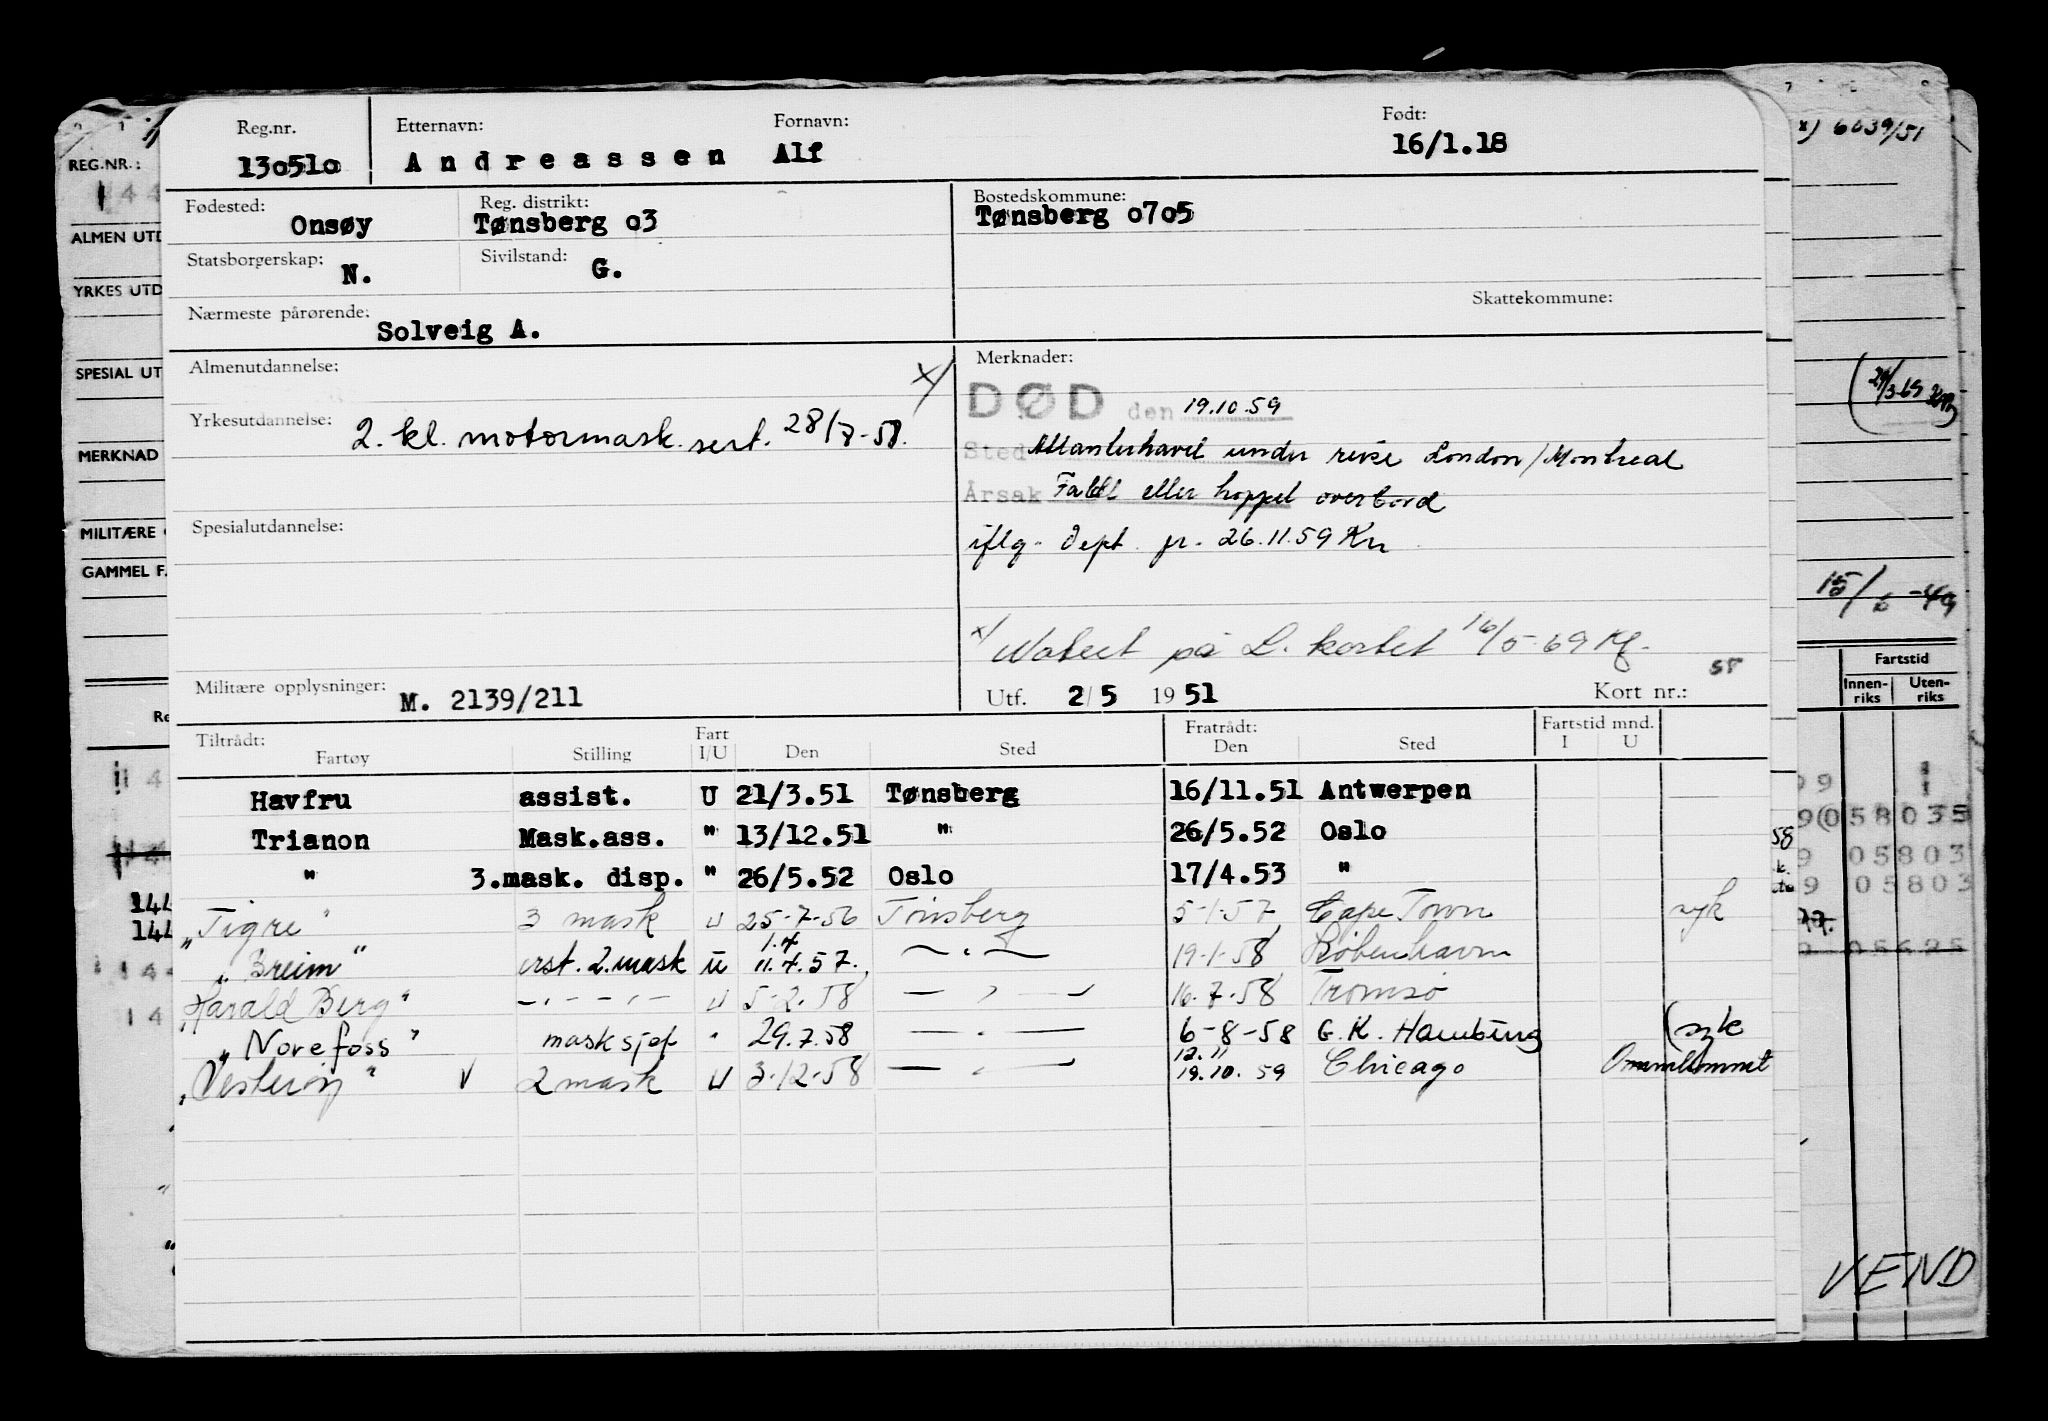 Reg.nr. Etternavn: Fornavn: Født:
130510 Andreassen Alf 16/1.18
Fødested: Reg. distrikt: Bostedskommune:
Onsøy Tønsberg o3 Tønsberg o7o5
Statsborgerskap: Sivilstand:
N. G.
Skattekommune:
Nærmeste pårørende:
Solveig A.
Almenutdannelse: x/ Merknader:
DØD den 19.10.59
Yrkesutdannelse: 2. kl. motormask. sert. 28/7-58.
Sted Atlanterhavet under reise London/Montreal
Årsak Falt eller hoppet overbord
Spesialutdannelse:
iflg. dept. 26.11.59 Kn
x/ Notert på L. kortet 16/5-69
58
Militære opplysninger: M. 2139/211 Utf. 2/5 1951 Kort nr.:
Tiltrådt: Fart Fratrådt: Fartstid mnd.
Fartøy Stilling I/U Den Sted Den Sted I U
Havfru assist. U 21/3.51 Tønsberg 16/11.51 Antwerpen
Trianon Mask.ass. " 13/12.51 " 26/5.52 Oslo
" 3.mask. disp. " 26/5.52 Oslo 17/4.53 "
"Tigre" 3 mask U 25-7-56 Tønsberg 5-1-57 Cape Town syk
1.7
"Breim" erst. 2. mask U 11.7.57. — " — 19-1-58 København
"Harald Berg" - " - - " - U 5-2-58 — " — 16-7-58 Tromsø
"Norefoss" masksjef " 29.7.58 — " — 6-8-58 G.K. Hamburg (syk
12.11
"Vesterøy" V 2 mask U 3-12-58 — " — 19.10.59 Chicago Omkommet
REG.NR.:
ALMEN UTD
YRKES UTD
SPESIAL UT
MERKNAD
MILITÆRE
GAMMEL F.
x) 6039/51
15/6-49
Fartstid
Innen-riks Uten-riks
VEND